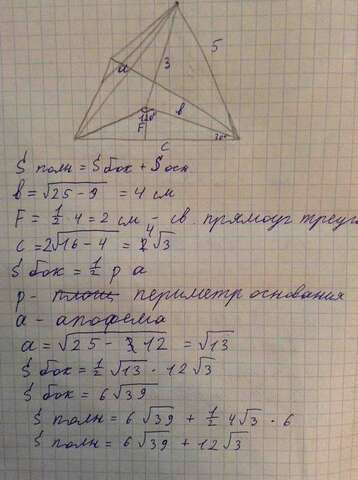 a
3
5
120°
в
F
30°
c
S полн = S бок + S осн
в = √25 - 9 = 4 см
F = 1/2 · 4 = 2 см - св прямоуг треуг
c = 2√16 - 4 = 4√3
S бок = 1/2 p a
p - периметр основания
a - апофема
a = √25 - 12 = √13
S бок = 1/2 √13 · 12√3
S бок = 6√39
S полн = 6√39 + 1/2 4√3 · 6
S полн = 6√39 + 12√3